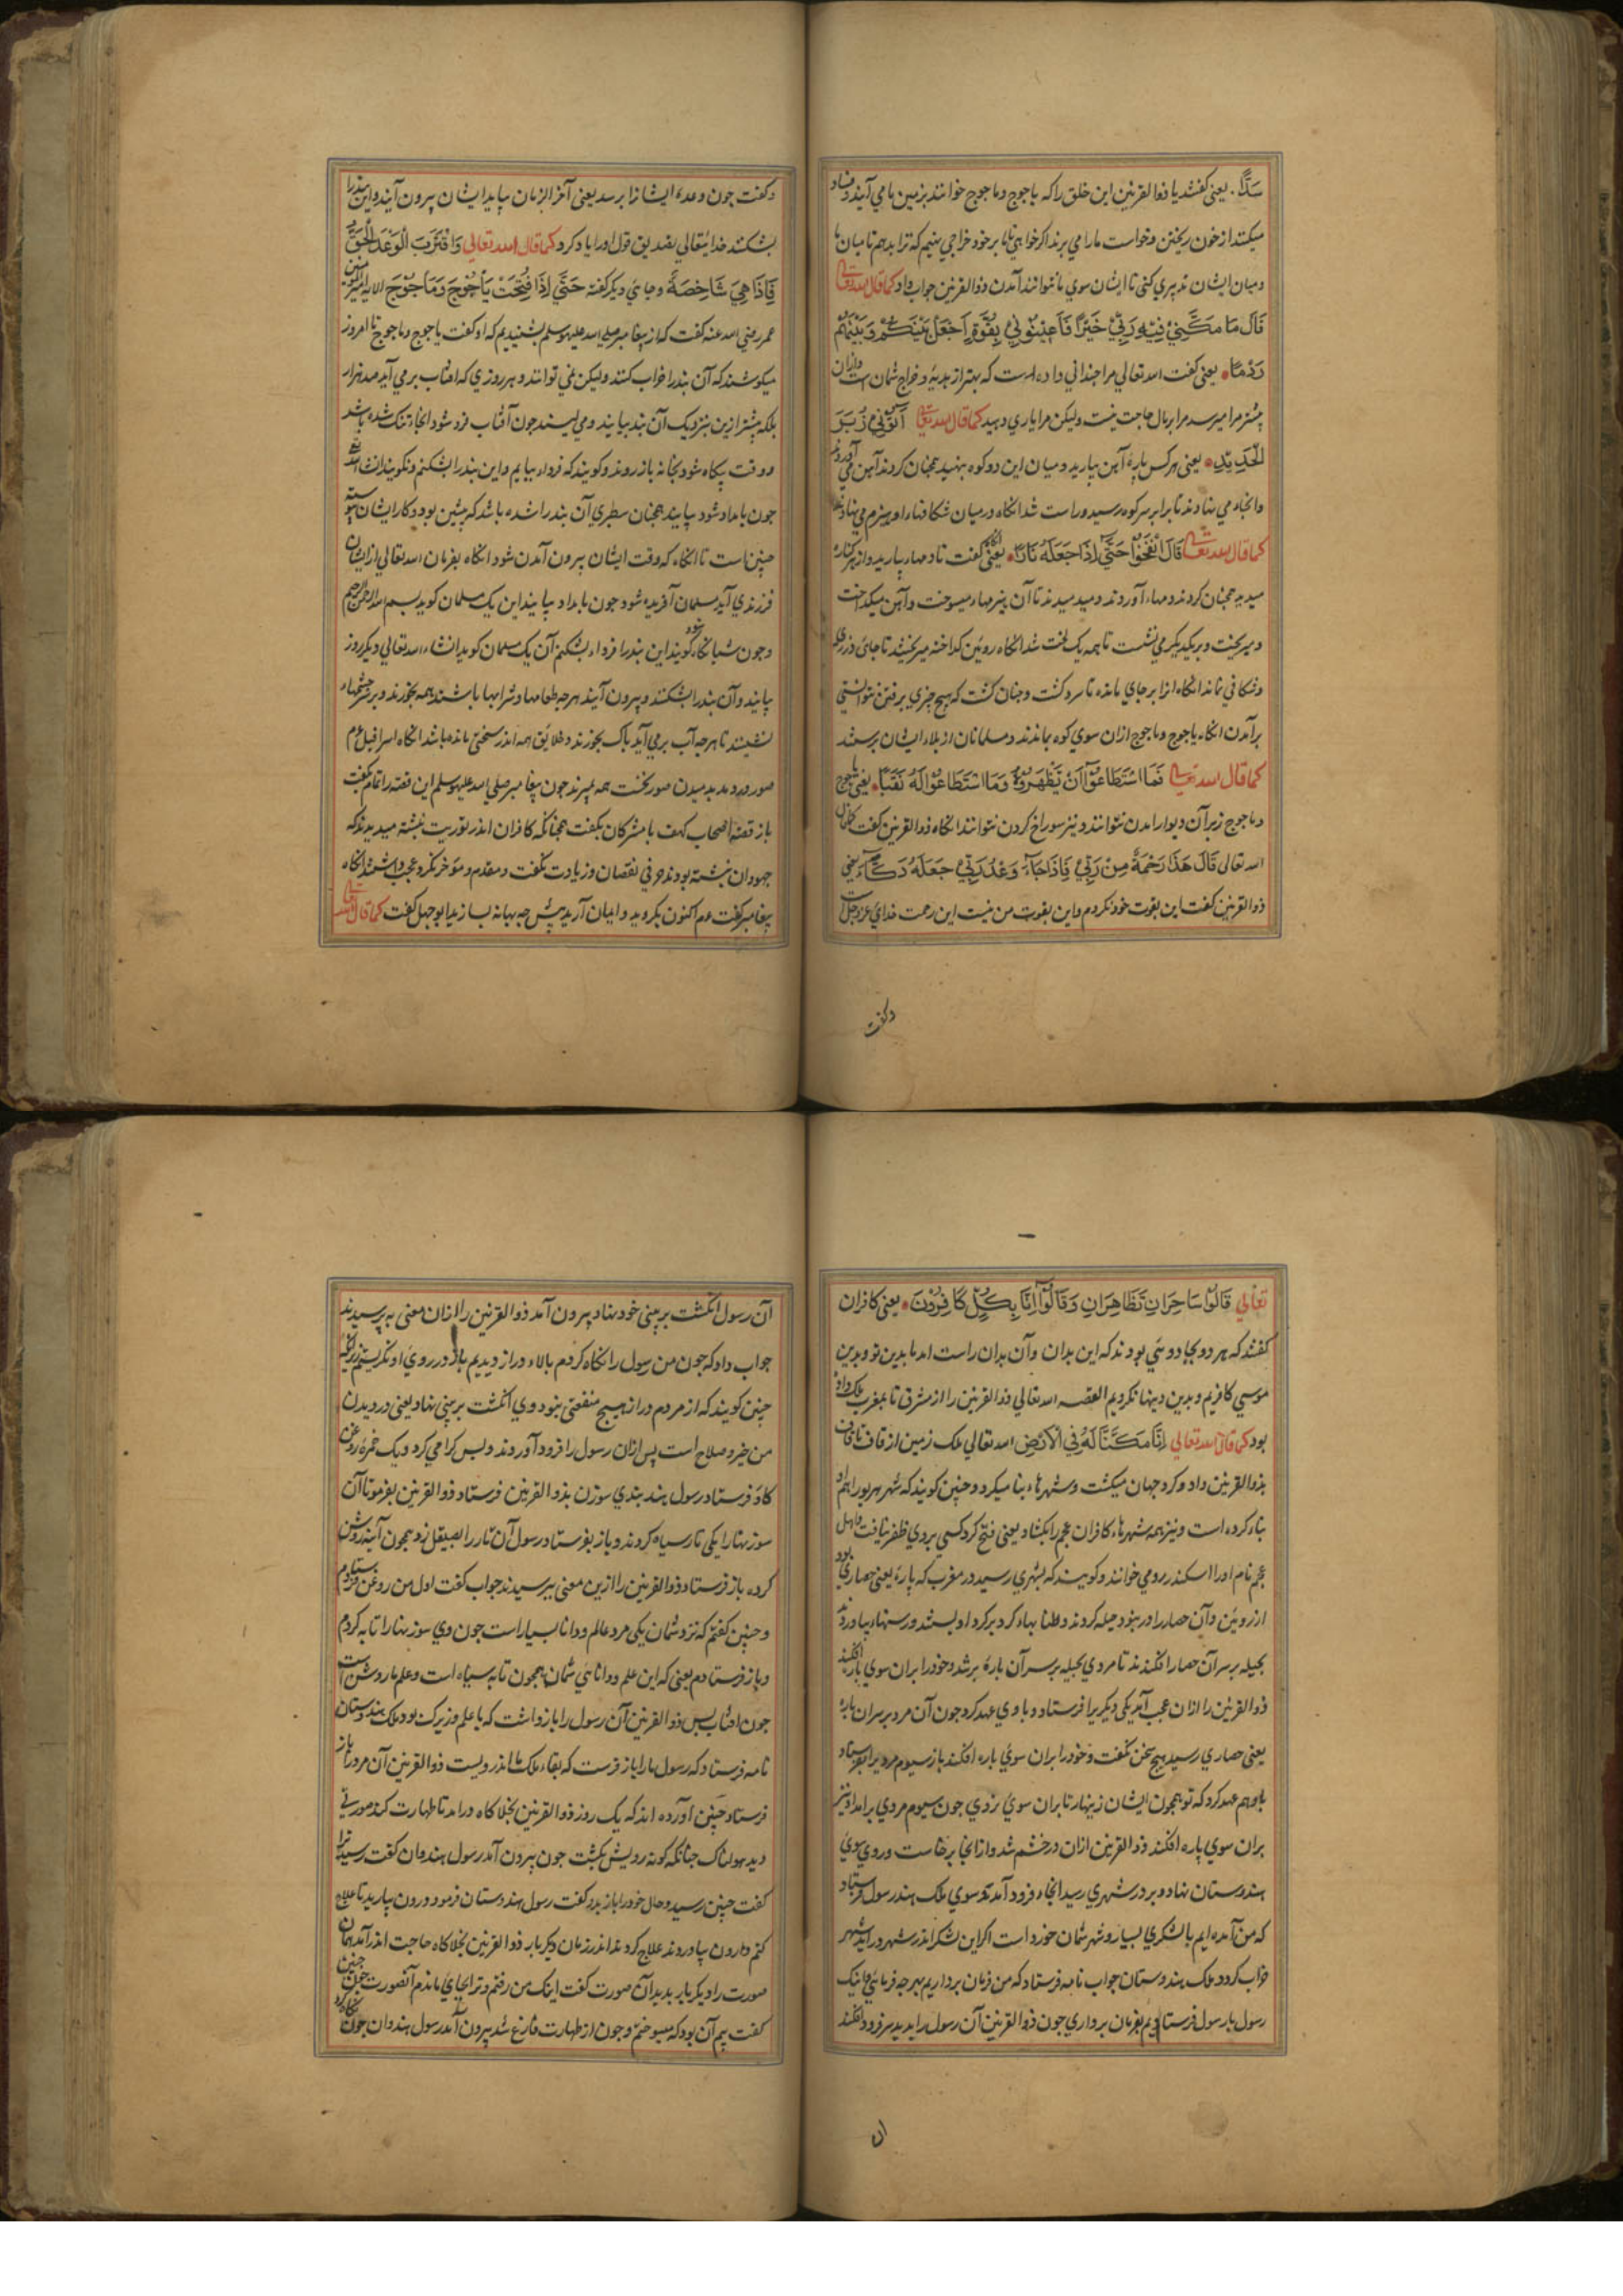 سَدًّا. یعنی گفتند یا ذوالقرنین این خلق را که یاجوج و ماجوج خوانند بزمین ما می آیند و فساد
میکنند از خون ریختن و خواست ما را می برند اگر خواهی تا ما بر خود خراجی بنهیم که ترا بدهیم تا میان ما
و میان ایشان تدبیری کنی تا ایشان سوی ما نتوانند آمدن ذوالقرنین جواب داد کما قال الله تعالی
قَالَ مَا مَكَّنِّيْ فِيْهِ رَبِّيْ خَيْرٌ فَاَعِيْنُوْنِيْ بِقُوَّةٍ اَجْعَلْ بَيْنَكُمْ وَبَيْنَهُمْ
رَدْمًا. یعنی گفت الله تعالی مرا چندانی داده است که بهتر از هدیه و خراج شمان است و ازان
بیشتر مرا میرسد مرا بر مال حاجت نیست ولیکن مرا یاری دهید کما قال الله تعالی آتُوْنِيْ زُبَرَ
الْحَدِيْدِ. یعنی هر کس پارۀ آهن بیارید و میان این دو کوه بنهید همچنان کردند آهن می آوردند
و انجا می نهادند تا برابر سر کوه رسید و راست شد انگاه در میان شکافهاء او هیزم می نهادند
کما قال الله تعالی قَالَ انْفُخُوْا حَتّٰى اِذَا جَعَلَهُ نَارًا. یعنی گفت تا دمها بیارید و از هر کنارۀ
میدمید همچنان کردند و دمهاء آوردند و میدمیدند تا آن هیزمهاء میسوخت و آهن میگداخت
و میریخت و بریکدیگر می نشست تا همه یک لخت شد انگاه روئین گداخته میریختند تا جای درزی
و شکافی نماند انگاه انرا بر جای ماندند تا سرد گشت و چنان گشت که هیچ چیزی برفتن نتوانستی
برآمدن انگاه یاجوج و ماجوج ازان سوی کوه بماندند و مسلمانان از بلاء ایشان برستند
کما قال الله تعالی فَمَا اسْتَطَاعُوْا اَنْ يَظْهَرُوْهُ وَمَا اسْتَطَاعُوْا لَهُ نَقْبًا. یعنی یاجوج
و ماجوج زبر آن دیوار امدن نتوانند و نیز سوراخ کردن نتوانند انگاه ذوالقرنین گفت کما قال
الله تعالی قَالَ هٰذَا رَحْمَةٌ مِنْ رَبِّيْ فَاِذَا جَآءَ وَعْدُ رَبِّيْ جَعَلَهُ دَكَّآءَ یعنی
ذوالقرنین گفت این بقوت خود نکردم و این بقوت من نیست این رحمت خدای عز و جل است
وگفت
وگفت چون وعدۀ ایشانرا برسد یعنی آخر الزمان بیاید ایشان بیرون آیند و این بند را
بشکنند خدایتعالی بتصدیق قول او را یاد کرد کما قال الله تعالی وَاقْتَرَبَ الْوَعْدُ الْحَقُّ
فَاِذَا هِيَ شَاخِصَةٌ و جای دیگر گفته حَتّٰى اِذَا فُتِحَتْ يَأْجُوْجُ وَمَأْجُوْجُ الایه امیرالمومنین
عمر رضی الله عنه گفت که از پیغامبر صلی الله علیه وسلم شنیدیم که او گفت یاجوج و ماجوج تا امروز
میکوشند که آن بند را خراب کنند ولیکن نمی توانند و هر روزی که افتاب برمی آید صد هزار
بلکه بیشتر ازین بنزدیک آن بند بیایند و می لیسند چون آفتاب فرو شود انجا تنک شده باشد
و وقت بیگاه شود بخانه باز روند و گویند که فرداء بیایم و این بند را بشکنم و نگویند انشاء الله تعالی
چون بامداد شود بیایند همچنان سطبری آن بند را شده باشد که پیشین بود و کار ایشان پیوسته
چنین است تا انگاه که وقت ایشان بیرون آمدن شود انگاه بفرمان الله تعالی از ایشان
فرزندی آید مسلمان آفریده شود چون بامداد بیایند این یک مسلمان گوید بسم الله الرحمن الرحیم
و چون شبانگاه شود گویند این بند را فرداء بشکنیم آن یک مسلمان گوید انشاء الله تعالی دیگر روز
بیایند و آن بند را بشکنند و بیرون آیند هر چه طعامها و شرابها باشند همه بخورند و بر چشمهاء
نشینند تا هر چه آب برمی آید پاک بخورند و خلایق همه اندر سختی مانده باشد انگاه اسرافیل عم
صور در دمد بدمیدن صور نخست همه بمیرند چون پیغامبر صلی الله علیه وسلم این قصه را تمام بگفت
باز قصۀ اصحاب کهف با مشرکان بگفت همچنانکه کافران اندر توریت نبشته میدیدند که
جهودان نبشته بودند حرفی نقصان و زیادت نگفت و مقدم و مؤخر نکرد عجب داشتند انگاه
پیغامبر گفت عم اکنون بگروید و ایمان آرید پیش چه بهانه سازید ابوجهل گفت کما قال الله
تعالی قَالُوْا سَاحِرَانِ تَظَاهَرَانِ وَقَالُوْا اِنَّا بِكُلٍّ كَافِرُوْنَ. یعنی کافران
گفتند که هر دو بجادوئی بودند که این بدان و آن بدان راست امد ما بدین تو و بدین
موسی کافریم و بدین دینها نگرویم القصه الله تعالی ذوالقرنین را از مشرق تا بمغرب ملک داده
بود کما قال الله تعالی اِنَّا مَكَّنَّا لَهُ فِي الْاَرْضِ الله تعالی ملک زمین از قاف تا قاف
بذوالقرنین داد و گرد جهان میگشت و شهرهاء بنا میکرد و چنین گویند که شهر هریو را هم او
بناء کرده است و نیز همه شهرهاء کافران عجم را بگشاد یعنی فتح کرد کسی بر وی ظفر نیافت و اهل
عجم نام او را اسکندر رومی خوانند و گویند که بشهری رسید در مغرب که پارۀ یعنی حصاری بود
از روئین و آن حصار را در نبود حیله کردند و طنابهاء گرد بر گرد او بستند و رسنهاء بیاوردند
بحیله بر سر آن حصار افکندند تا مردی بحیله بر سر آن بارۀ بر شد و خود را بران سوی باره افکند
ذوالقرنین را ازان عجب آمد یکی دیگریرا فرستاد و با وی عهد کرد چون آن مرد بر سر ان باره
یعنی حصاری رسید هیچ سخن نگفت و خود را بران سوی باره افکند باز سیوم مردیرا بفرستاد
با او هم عهد کرد که تو همچون ایشان زینهار تا بران سوی نروی چون سیوم مردی برامد او نیز
بران سوی باره افکند ذوالقرنین ازان در خشم شد و از انجا برخاست و روی سوی
هندوستان نهاد و بر در شهری رسید انجاء فرود آمد و سوی ملک هند رسول فرستاد
که من آمده ایم با لشکری بسیار و شهر شمان خورد است اگر این لشکر اندر شهر در اید شهر
خراب گردد ملک هندوستان جواب نامه فرستاد که من فرمان برداریم بهر چه فرمائی و اینک
رسول با رسول فرستادیم بفرمان برداری چون ذوالقرنین آن رسول را بدید سر فرود افکند
ان
آن رسول انگشت بر بینی خود نهاد بیرون آمد ذوالقرنین را ازان معنی به پرسیدند
جواب داد که چون من رسول را نگاه کردم بالاء دراز دیدیم باز در روی او نگریستم زیرا که
چنین گویند که از مردم دراز هیچ منفعتی نبود وی انگشت بر بینی نهاد یعنی در دیدن
من خیر و صلاح است پس ازان رسول را فرود آوردند و بس گرامی کرد و یک خمرۀ روغن
گاؤ فرستاد رسول هند بندی سوزن بذوالقرنین فرستاد ذوالقرنین بفرمود تا آن
سوزنها را یکی تار سیاه کردند و باز بفرستاد رسول آن تار را بصیقل زد همچون آینه روشن
کرده باز فرستاد ذوالقرنین را ازین معنی بپرسیدند جواب گفت اول من روغن فرستادم
و چنین گفتم که نزد شمان یکی مرد عالم و دانا بسیار است چون وی سوزنها را تابه کردم
و باز فرستادم یعنی که این علم و دانائی شمان همچون تابه سیاه است و علم ما روشن است
چون افتاب پس ذوالقرنین آن رسول را باز داشت که با علم و زیرک بود ملک هندوستان
نامه فرستاد که رسول ما را باز فرست که بقاء ملک ما اندر ویست ذوالقرنین آن مرد را باز
فرستاد چنین آورده اند که یک روز ذوالقرنین بخلاگاه درامد تا طهارت کند صورتی
دید هولناک چنانکه گونه رویش بگشت چون بیرون آمد رسول هندوان گفت رسید ترا
گفت چنین رسید و حال خود را باز بدو گفت رسول هندوستان فرمود درون بیارید تا علاج
کنم دارون بیاوردند علاج کردند اندر زمان دیگر بار ذوالقرنین بخلاگاه حاجت اندر آمد همان
صورت را دیگر بار بدید آن صورت گفت اینک من رفتم و ترا بجای ماندم آنصورت چون چنین
گفت بیم آن بود که میسوختم و چون از طهارت فارغ شد بیرون آمد رسول هندوان چون نگاه کرد